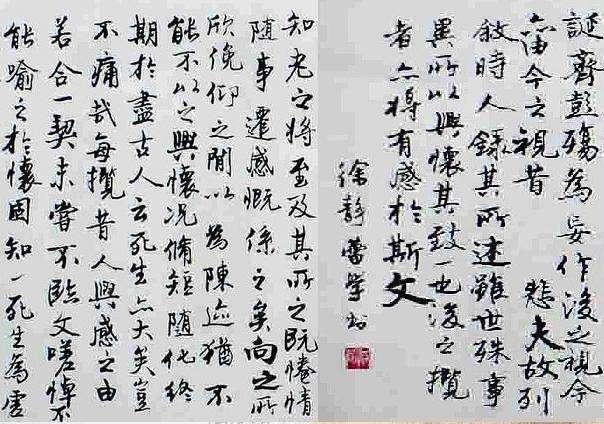 知老之將至及其所之既惓情
随事遷感慨係之矣向之所
欣俛仰之閒以為陳迹猶不
能不以之興懷况脩短随化終
期於盡古人云死生亦大矣豈
不痛哉每攬昔人興感之由
若合一契未嘗不臨文嗟悼不
能喻之於懷固知一死生為虛
誕齊彭殤為妄作後之視今
今之視昔 悲夫故列
敘時人錄其所述雖世殊事
異所以興懷其致一也後之攬
者亦將有感於斯文
徐静蕾學书